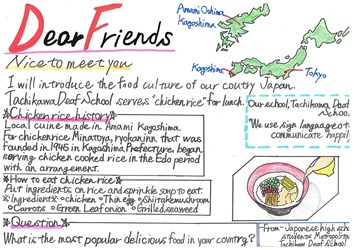 Dear Friends
Nice to meet you
I will introduce the food culture of our coutry Japan.
Tachikawa Deaf School serves "chicken rice" for lunch.
Amami Oshima
Kagoshima
Kagoshima
Tokyo
☆Chicken rice history☆
Local cuine made in Amami Kagoshima.
For chicken rice Minatoya, ryokan inn that was
founded in 1945 in Kagoshima Prefecture, began
serving chicken cooked rice in the Edo period
with an arrangement.
Our school, Tachikawa, Deaf
School
We use sign language to
communicate happily
☆How to eat chicken rice☆
Put ingredients on rice and sprinkle soup to eat.
☆Ingredients: chicken Thin egg Shiitake mushroom
Carrots Green leaf onion Grilled seaweed
☆Question☆
What is the most popular delicious food in your country?
From Japanese high
students Metropolitan
Tachikawa Deaf School